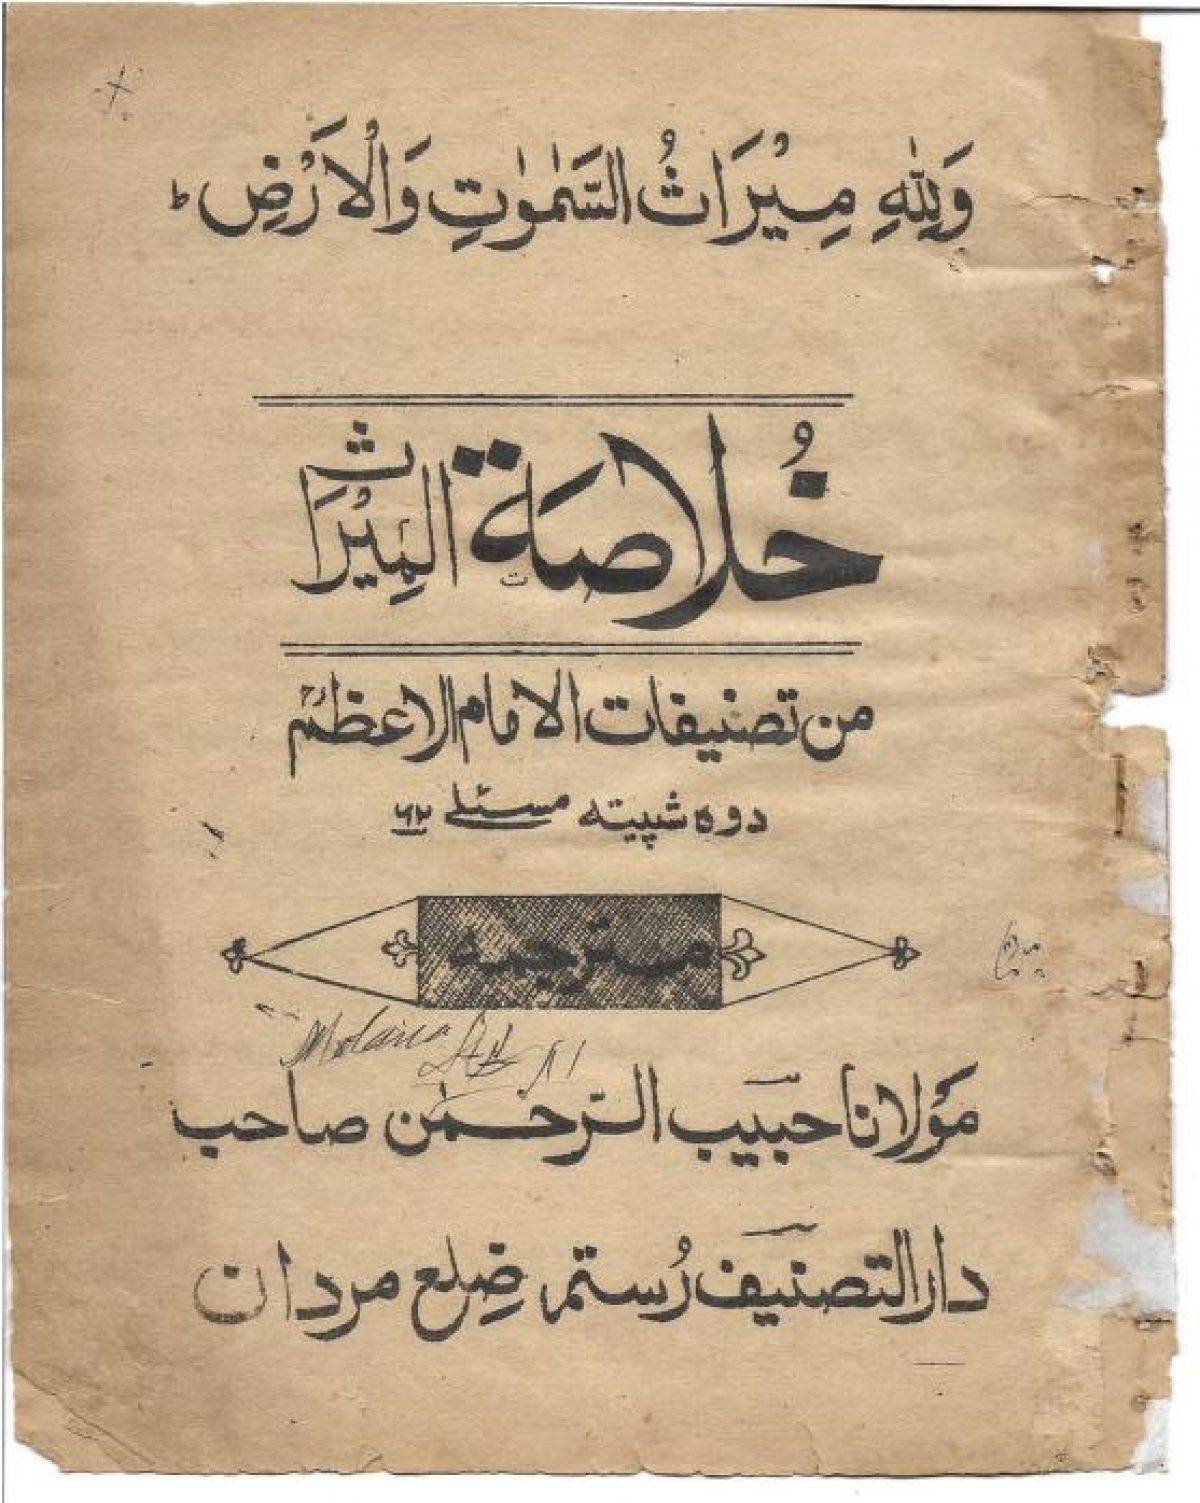 وَلِلّٰهِ مِيْرَاثُ السَّمٰوٰتِ وَالْاَرْضِ ط
خُلاصة الْمِيْرَاث
من تصنیفات الامام الاعظمؒ
دوه شپیته مسئلے ۶۲
مترجمه
Molana
مَولانا حبیب الرّحمٰن صاحب
دار التصنیف رُستم ضِلع مردان